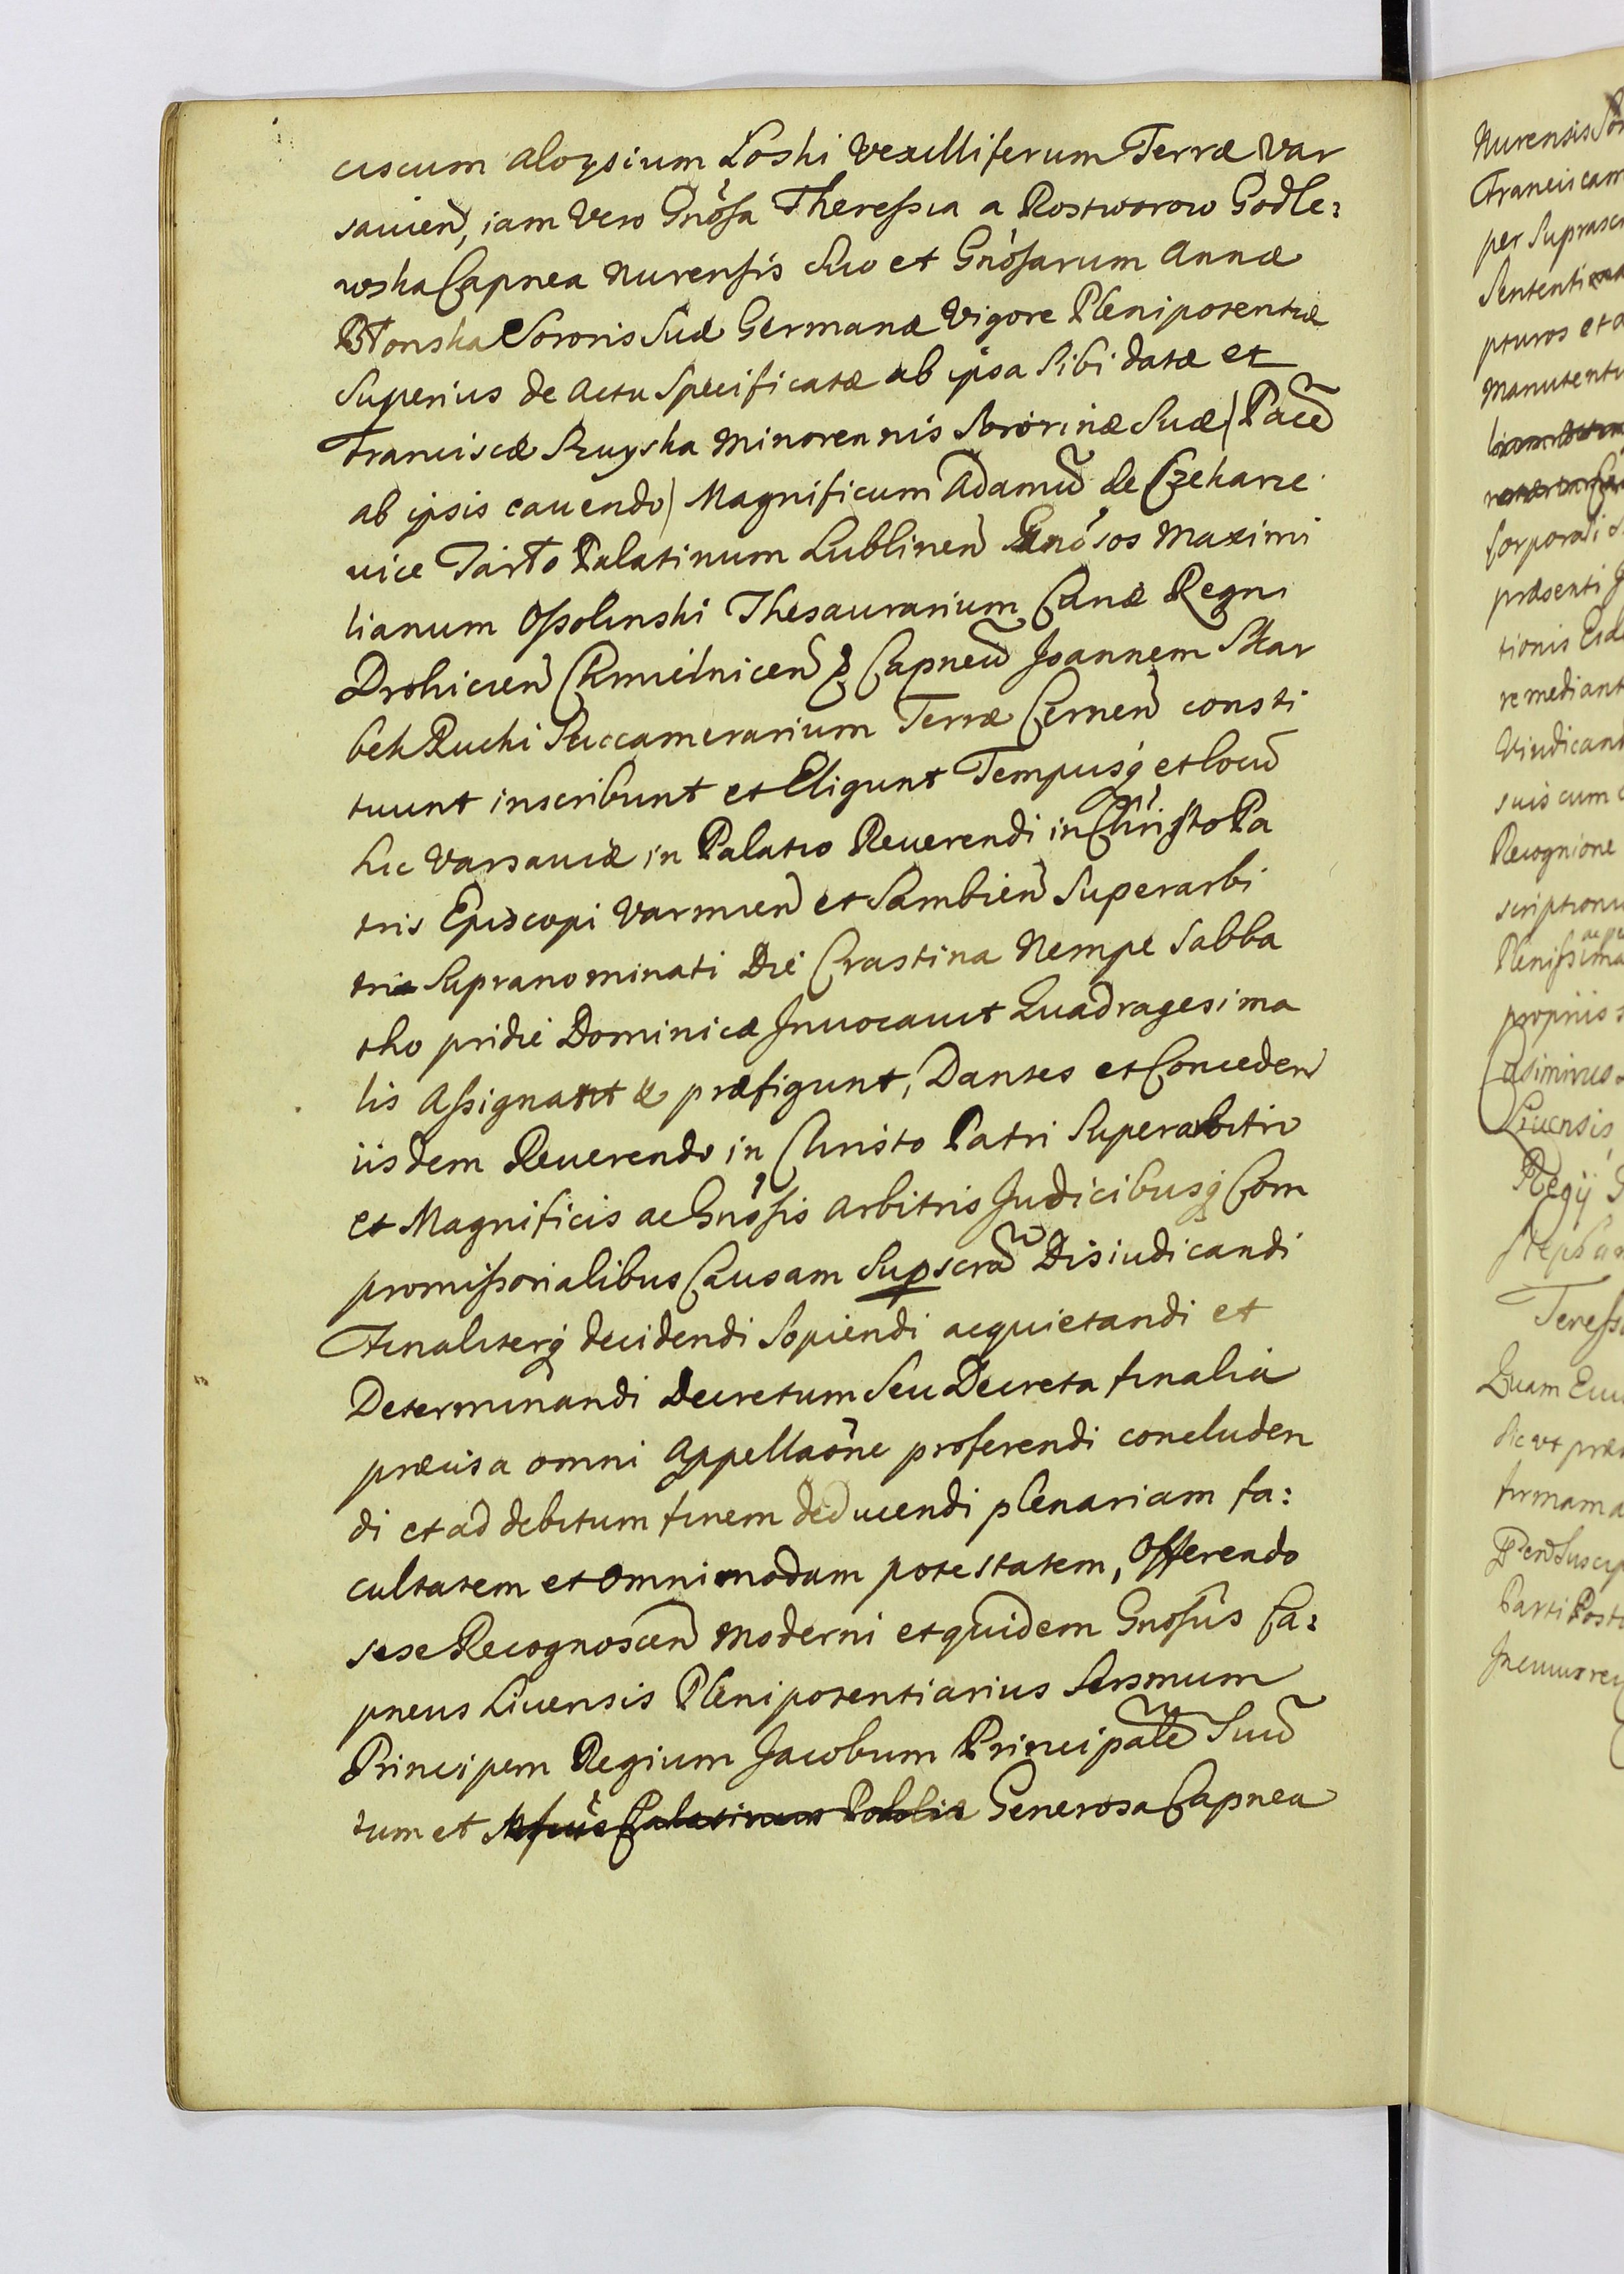 ciscum Aloysium Łoski Vexilliferum Terræ Var
sauien, iam Vero Gnosa Theressia a Rostworow Godle:
wska Capnea Nurensis Suo et Gnosarum Annæ
Błonska Sororis Suæ Germanæ Vigore Plenipotentiæ
Superius de Actu Specificatæ ab ipsa Sibi datæ et
Franciscæ Szuyska Minorennis Sororinæ Suæ) Pace
ab ipsis cauendo) Magnificum Adamu de Czekarze
uice Tarło Palatinum Lublinen Gnosos Maximi
lianum Ossolinski Thesaurarium Curiæ Regni
Drohicien Chmielnicen & Capneu Joannem Skar
bek Rucki Succamerarium Terræ Cernen consti
tuunt inscribunt et Eligunt Tempusq et locu
hic Varsauiæ in Palatio Reuerendi in Christo Pa
tris Episcopi Varmien et Sambien Superarbi
tri Supranominati Die Crastina Nempe Sabba
tho pridie Dominicæ Inuocauit Quadragesima
lis Assignant & præfigunt, Dantes et Conceden
iisdem Reuerendo in Christo Patri Superarbitro
et Magnificis ac Gnosis Arbitris Judicibusq Com
promissorialibus Causam Supscra Disiudicandi
Finaliterq decidendi Sopiendi acquietandi et
Determinandi Decretum Seu Decreta finalia
præcisa omni Appellaone proferendi concluden
di et ad debitum finem deducendi plenariam fa:
cultatem et omnimodam potestatem, Offerendo
sese Recognoscen moderni et quidem Gnosus Ca:
pneus Liuensis Plenipotentiarius Sersmum
Principem Regium Jacobum Principale Suu
tum et Palatinus Podoliæ Generosa Capnea
Nurensis
Franciscam
per
pturos et
præsenti
tionis
remediant
Vindicant
suis cum
Recognione
propriis
Liuensis
Regij
Quam
Sic ut
firmam
Parti